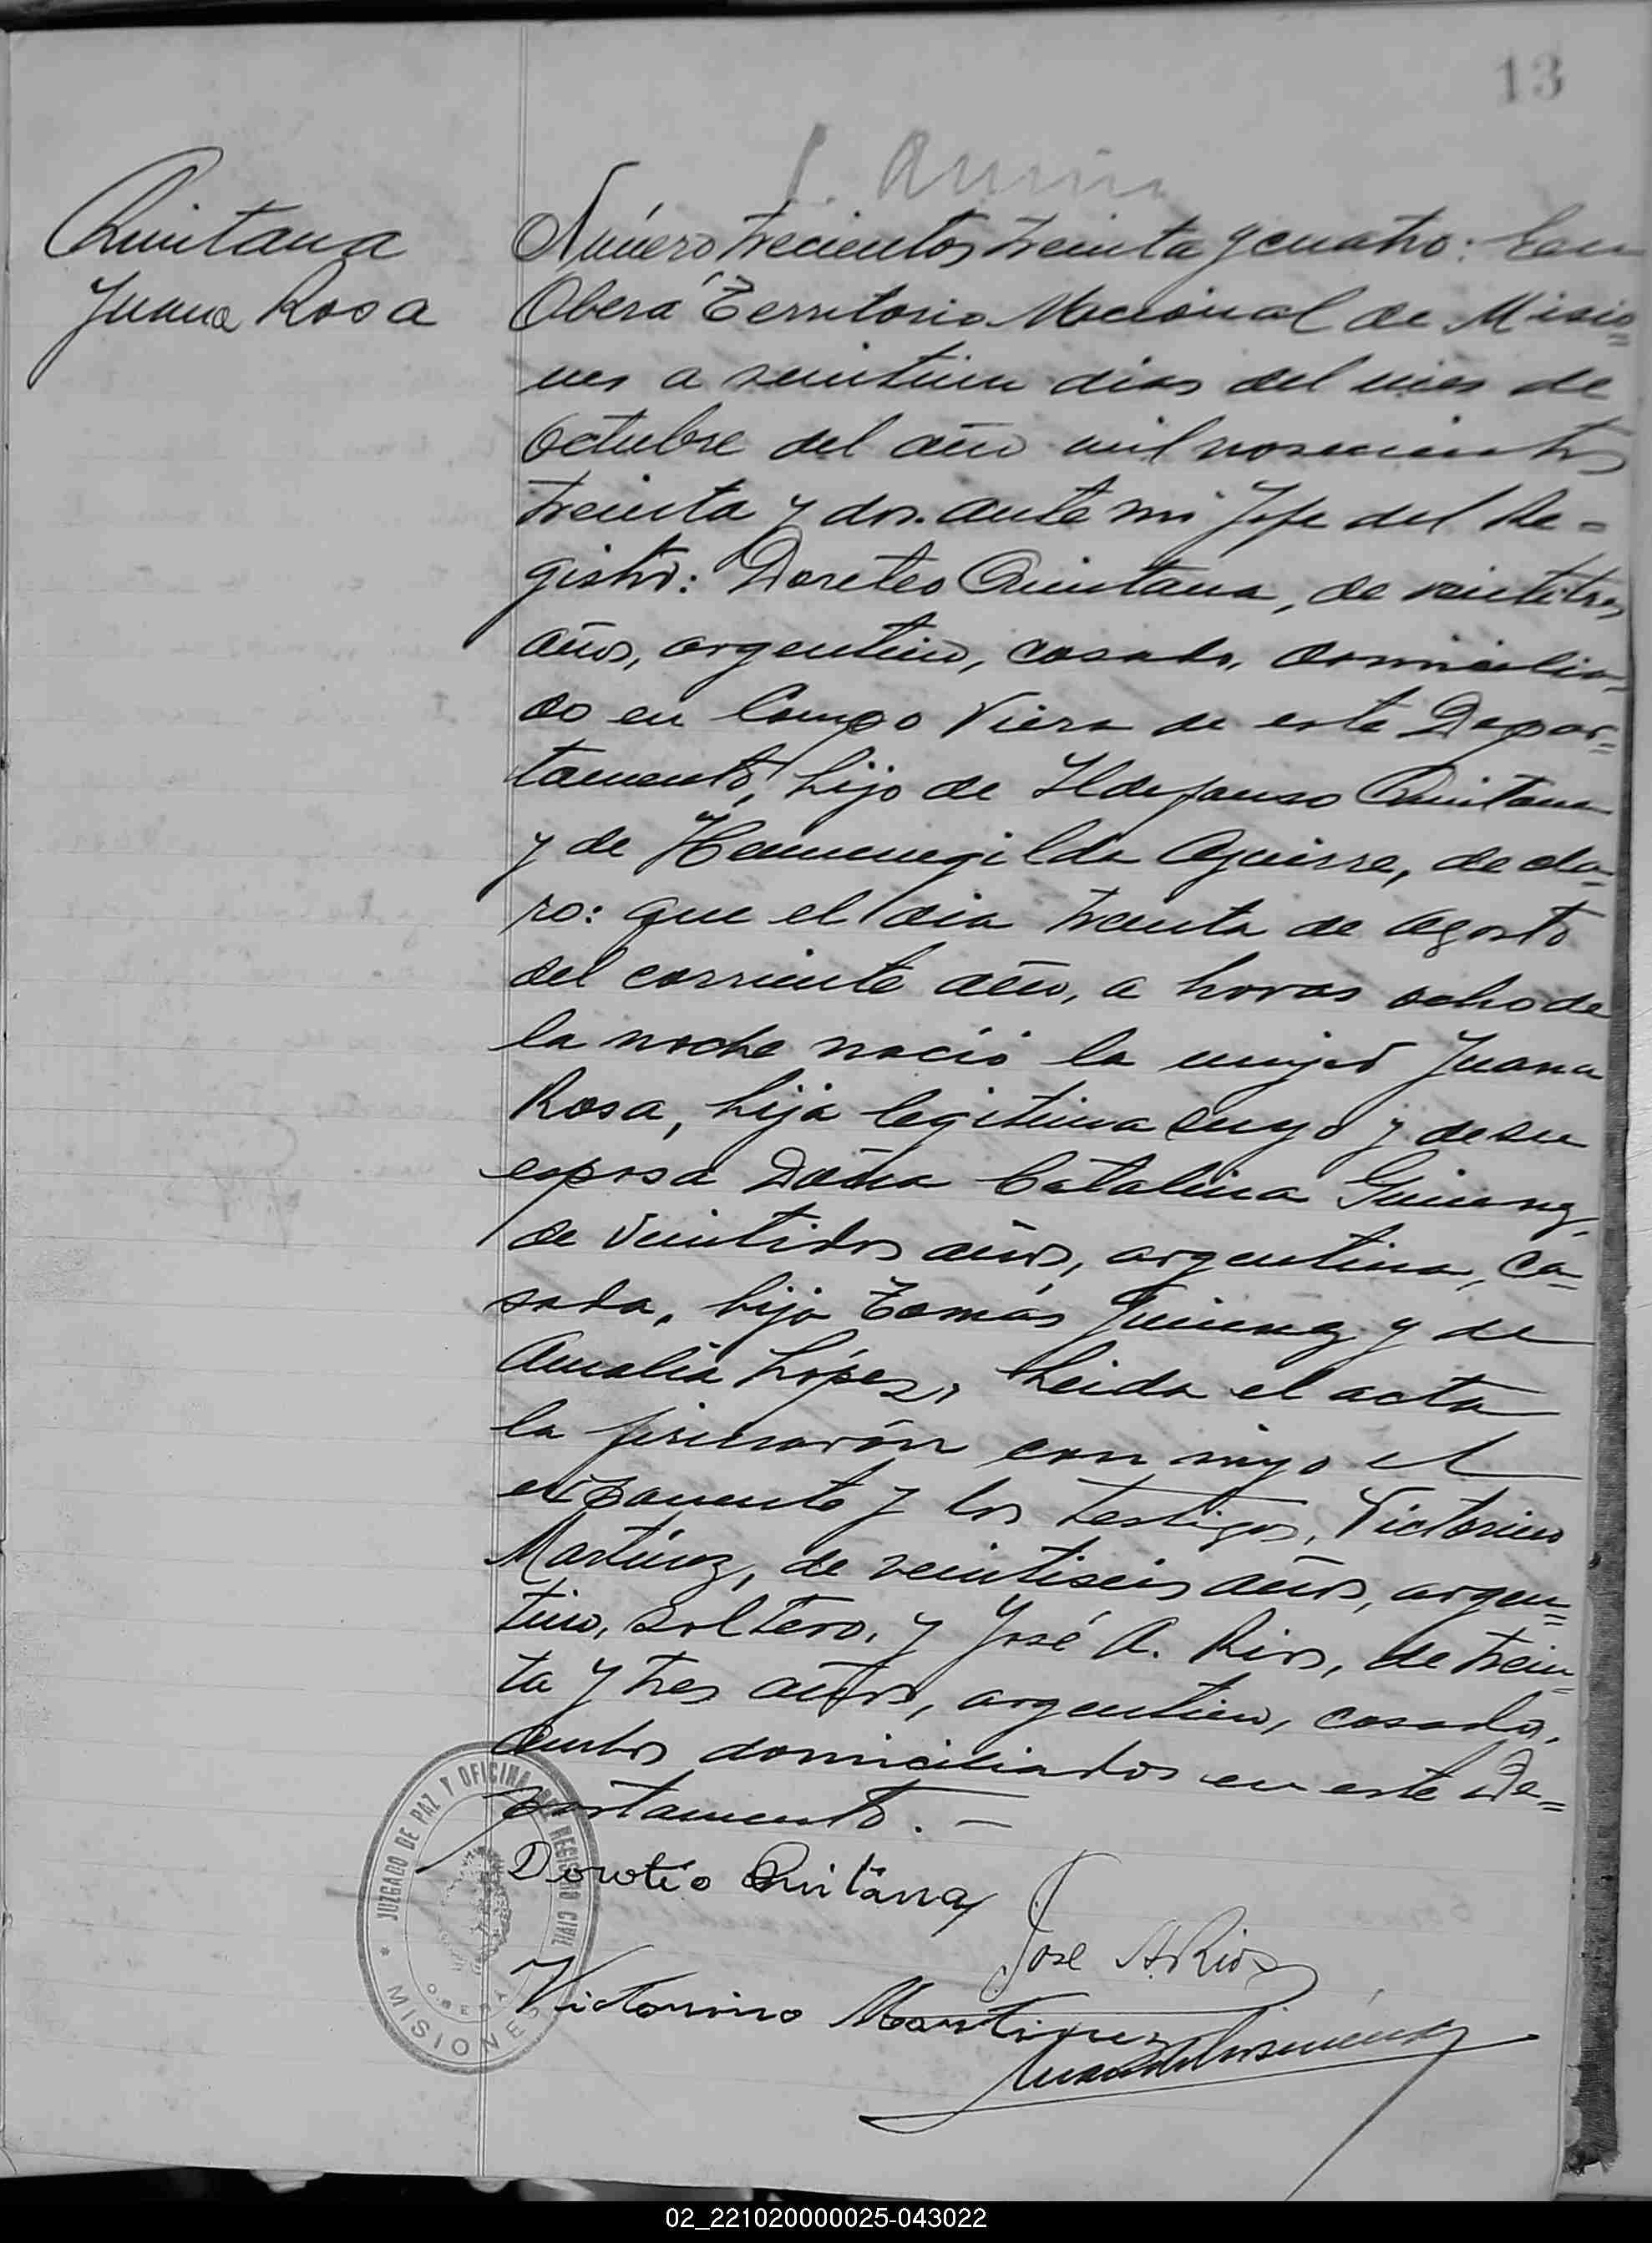 13
Quintana
Juana Rosa
Número trecientos treinta y cuatro: En
Oberá Territorio Nacional de Misio=
nes a veintiun dias del mes de
Octubre del año mil novecientos
treinta y dos. ante mi Jefe del Re=
gistro: Doreteo Quintana, de veintitres
años, argentino, casado, domicilia=
do en Campo Viera de este Depar=
tamento, hijo de Ildefonso Quintana
y de Hermenegilda Aguirre, de cla=
ro: que el dia treinta de Agosto
del corriente año, a horas ocho de
la noche nació la mujer Juana
Rosa, hija legitima suya y de su
esposa Doña Catalina Gimenez,
de veintidos años, argentina, ca=
sada, hija Tomás Jimenez y de
Amalia López. Leida el acta
la firmarón con migo el
exponente y los testigos, Victorino
Martínez, de veintiseis años, argen=
tino, soltero, y José A. Rios, de trein=
ta y tres años, argentino, casado,
ambos domiciliados en este De=
partamento. —
Dorotéo Quintana
José A Rios
Victorino Martinez
JUZGADO DE PAZ Y OFICINA DEL REGISTRO CIVIL
OBERÁ
* MISIONES
02_221020000025-043022